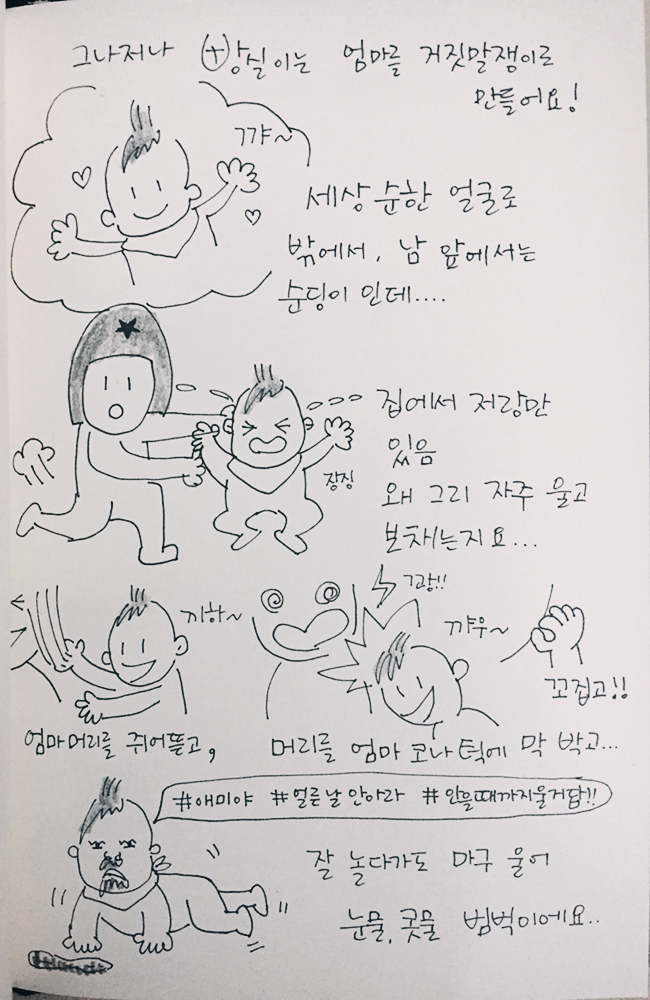 그나저나 (+)앙실이는 엄마를 거짓말쟁이로
만들어요!
꺄~
세상 순한 얼굴로
밖에서, 남 앞에서는
순딩이 인데....
집에서 저랑만
있음
왜 그리 자주 울고
보채는지요...
징징
끼하~
쾅!!
꺄우~
꼬집고!!
엄마머리를 쥐어뜯고,
머리를 엄마 코나 턱에 막 박고...
#애미야 #얼른날안아라 #안을때까지울거담!!
잘 놀다가도 마구 울어
눈물, 콧물 범벅이에요..